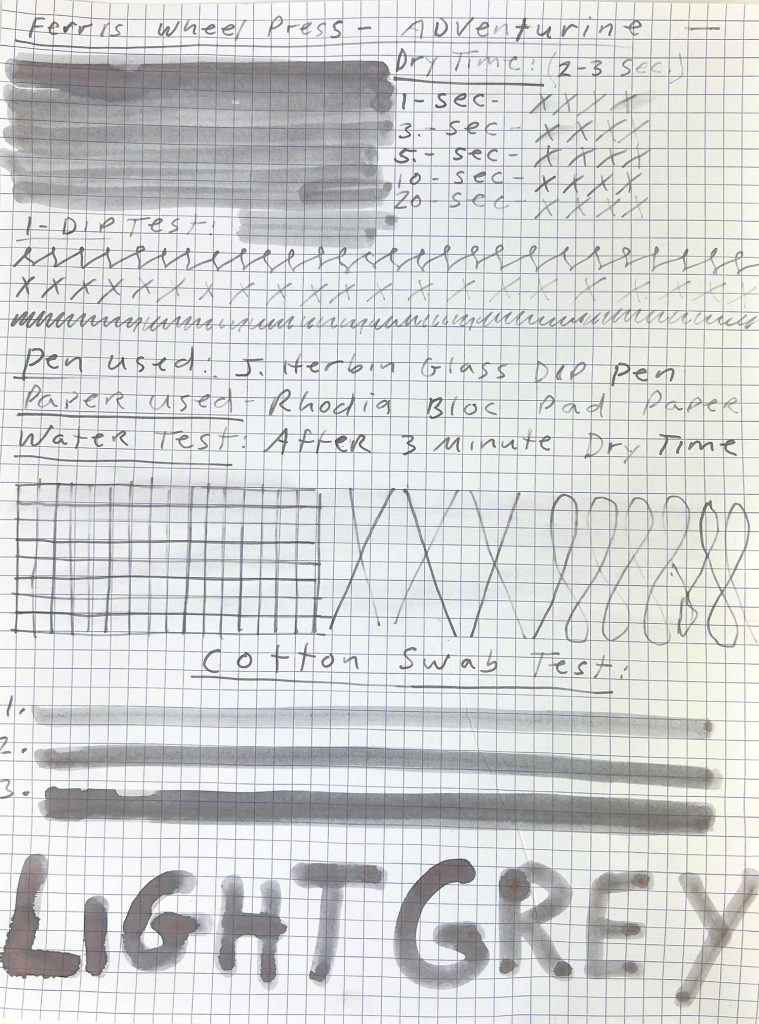 Ferris Wheel Press - ADventurine —
Dry Time: (2-3 sec.)
1-sec- XXXX
3.-sec- XXXX
5.-sec- XXXX
10-sec- XXXX
20-sec- XXXX
1-DIP Test:
X X X X X X X X X X X X X X X X X X X X X X
Pen used: J. Herbin Glass DIP Pen
Paper used- Rhodia Bloc Pad Paper
Water Test: After 3 Minute Dry Time
Cotton Swab Test:
1.
2.
3.
LIGHT GREY